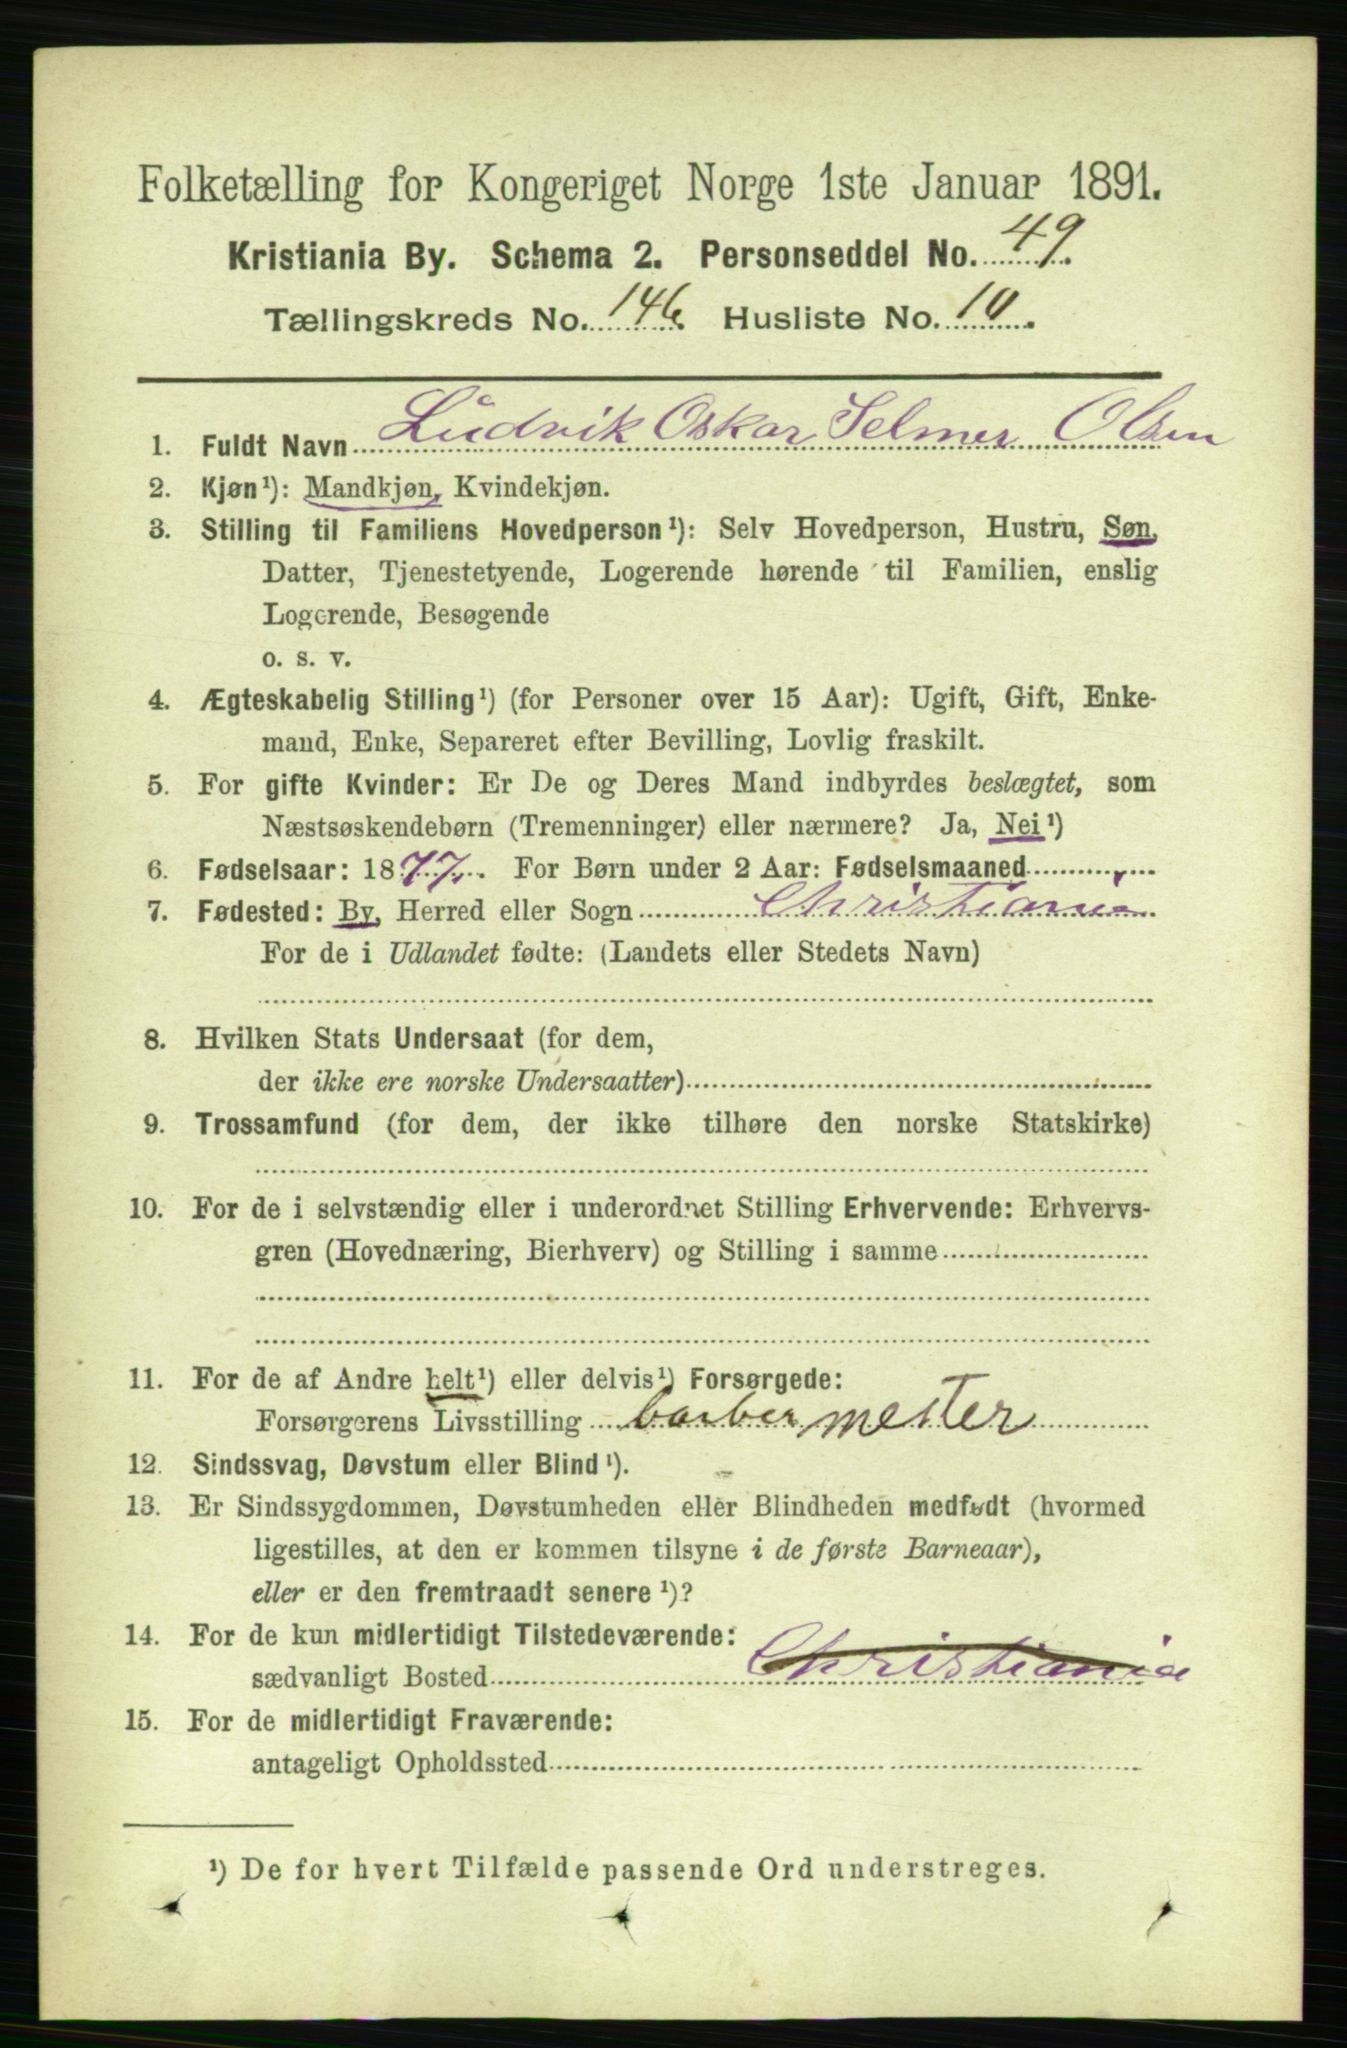 Folketælling for Kongeriget Norge 1ste Januar 1891.
Kristiania By. Schema 2. Personseddel No. 49.
Tællingskreds No. 146. Husliste No. 10.
1. Fuldt Navn Ludvik Oskar Selmer Olsen
2. Kjøn¹): Mandkjøn, Kvindekjøn.
3. Stilling til Familiens Hovedperson¹): Selv Hovedperson, Hustru, Søn,
Datter, Tjenestetyende, Logerende hørende til Familien, enslig
Logerende, Besøgende
o. s. v.
4. Ægteskabelig Stilling¹) (for Personer over 15 Aar): Ugift, Gift, Enke-
mand, Enke, Separeret efter Bevilling, Lovlig fraskilt.
5. For gifte Kvinder: Er De og Deres Mand indbyrdes beslægtet, som
Næstsøskendebørn (Tremenninger) eller nærmere? Ja, Nei¹)
6. Fødselsaar: 1877. For Børn under 2 Aar: Fødselsmaaned
7. Fødested: By, Herred eller Sogn Christiania
For de i Udlandet fødte: (Landets eller Stedets Navn)
8. Hvilken Stats Undersaat (for dem,
der ikke ere norske Undersaatter)
9. Trossamfund (for dem, der ikke tilhøre den norske Statskirke)
10. For de i selvstændig eller i underordnet Stilling Erhvervende: Erhvervs-
gren (Hovednæring, Bierhverv) og Stilling i samme
11. For de af Andre helt¹) eller delvis¹) Forsørgede:
Forsørgerens Livsstilling barber mester
12. Sindssvag, Døvstum eller Blind¹).
13. Er Sindssygdommen, Døvstumheden eller Blindheden medfødt (hvormed
ligestilles, at den er kommen tilsyne i de første Barneaar),
eller er den fremtraadt senere¹)?
14. For de kun midlertidigt Tilstedeværende:
sædvanligt Bosted Christiania
15. For de midlertidigt Fraværende:
antageligt Opholdssted
¹) De for hvert Tilfælde passende Ord understreges.